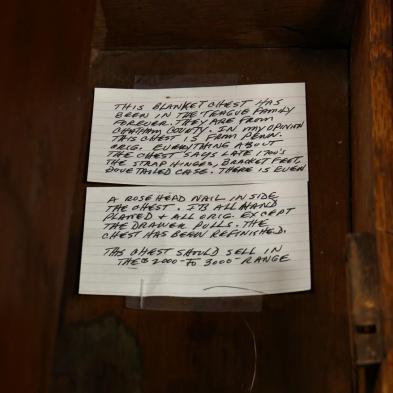 THIS BLANKET CHEST HAS
BEEN IN THE TEAGUE FAMILY
FOREVER. THEY ARE FROM
CHATHAM COUNTY. IN MY OPINION
THIS CHEST IS FROM PENN.
ORIG. EVERYTHING ABOUT
THE CHEST SAYS LATE 1700'S
THE STRAP HINGES, BRACKET FEET,
DOVETAILED CASE. THERE IS EVEN
A ROSE HEAD NAIL INSIDE
THE CHEST. IT'S ALL HAND
PLANED + ALL ORIG. EXCEPT
THE DRAWER PULLS. THE
CHEST HAS BEEN REFINISHED.
THIS CHEST SHOULD SELL IN
THE $2000- TO 3000- RANGE